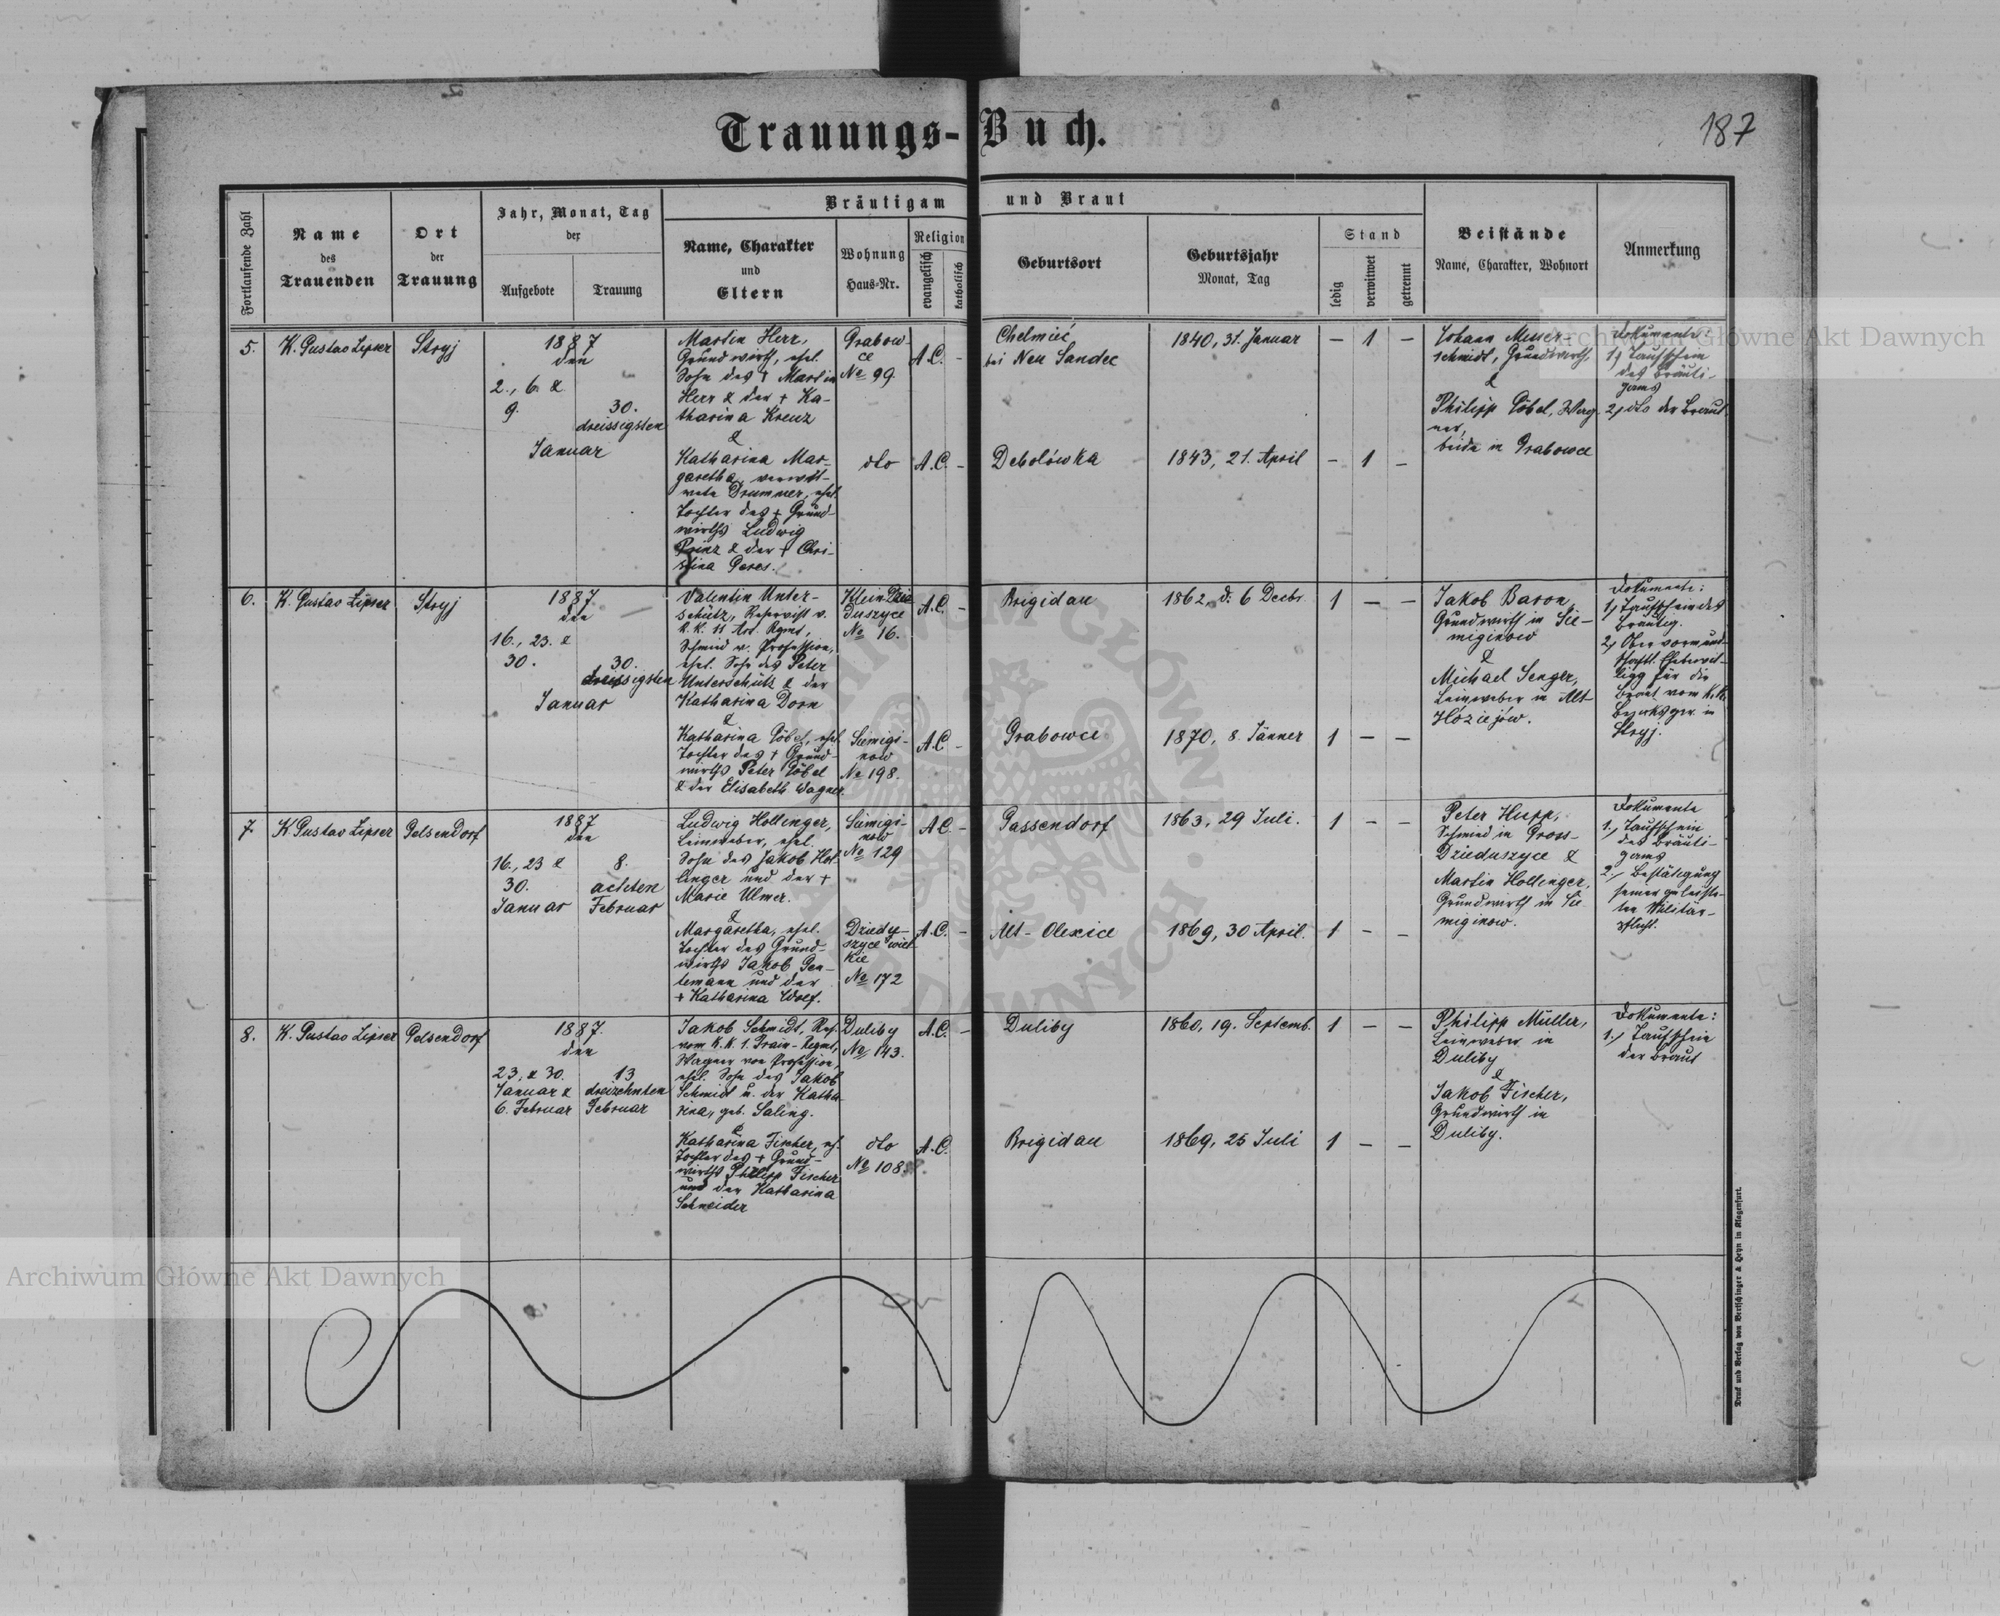 Trauungs-Buch.
187
Fortlaufende Zahl
Name
des
Trauenden
Ort
der
Trauung
Jahr, Monat, Tag
der
Aufgebote
Trauung
Bräutigam und Braut
Name, Charakter
und
Eltern
Wohnung
Haus-Nr.
Religion
evangelisch
katholisch
Geburtsort
Geburtsjahr
Monat, Tag
Stand
ledig
verwitwet
getrennt
Beistände
Name, Charakter, Wohnort
Anmerkung
5.
K. Gustav Lipser
Stryj
1887
den
2., 6. &
9.
30.
dreissigsten
Januar
Martin Herr,
Grundwirth, ehel.
Sohn des + Martin
Herr & der + Ka-
tharina Kreuz
&
Katharina Mar-
garetha, verwitt-
wete Drummer, ehel.
Tochter des + Grund-
wirths Ludwig
Prinz & der + Chri-
stina Geres.
Grabow-
ce
No 99
A.C. -
dto
A.C. -
Chelmiéc
bei Neu Sandec
1840, 31. Januar
— 1 —
Debolówka
1843, 21. April
— 1 —
Johann Messer-
schmidt, Grundwirth,
&
Philipp Göbel, Wag-
ner,
beide in Grabowce
Dokumente:
1, Taufschein
des Bräuti-
gams
2, dto der Braut
6.
K. Gustav Lipser
Stryj
1887
den
16., 23. &
30.
30.
dreissigsten
Januar
Valentin Unter-
schütz, Reservist v.
K. K. 11 Art. Rgmt,
Schmied v. Profession,
ehel. Sohn des Peter
Unterschütz & der
Katharina Dorn
&
Katharina Göbel, ehel.
Tochter des + Grund-
wirths Peter Göbel
& der Elisabeth Wagner.
Klein Dzie
duszyce
No 16.
A.C. -
Siemigi-
now
No 198.
A.C -
Brigidau
1862, d. 6 Decbr
1 — —
Grabowce
1870, 8. Jänner
1 — —
Jakob Baron,
Grundwirth in Sie-
miginow
&
Michael Senger,
Leinweber in Alt-
Hoziejów.
Dokumente:
1, Taufschein des
Bräutig.
2, Obervormund-
schaftl. Ehebewil-
ligg für die
Braut vom K.K.
Bezirksger. in
Stryj.
7.
K. Gustav Lipser
Gelsendorf
1887
den
16., 23 &
30.
Januar
8.
achten
Februar
Ludwig Hollinger,
Leinweber, ehel.
Sohn des Jakob Hol
linger und der +
Marie Ulmer.
&
Margaretha, ehel.
Tochter des Grund-
wirths Jakob Gen-
temann und der
+ Katharina Wolf.
Siemigi-
now
No 129
A.C. -
Dziedu-
szyce wiel
kie
No 172
A.C. -
Gassendorf
1863, 29 Juli.
1 — —
Alt-Olexice
1869, 30 April.
1 — —
Peter Hupp,
Schmied in Gross-
Dzieduszyce &
Martin Hollinger,
Grundwirth in Sie
miginow.
Dokumente
1., Taufschein
des Bräuti-
gams
2., Bestätigung
seiner geleiste-
ten Militär-
pflicht.
8.
K. Gustav Lipser
Gelsendorf
1887.
den
23, & 30.
Januar &
6. Februar
13
dreizehnten
Februar
Jakob Schmidt, Res.
vom K.K. 1. Train-Regmt,
Wagner von Profession,
ehel. Sohn des Jakob
Schmidt u. der Katha-
rina, geb. Saling.
&
Katharina Fischer, eh.
Tochter des + Grund-
wirths Philipp Fischer
und der Katharina
Schneider
Duliby
No 143.
A.C. -
dto
No 108
A.C.
Duliby
1860, 19. Septemb.
1 — —
Brigidau
1869, 25 Juli
1 — —
Philipp Müller,
Leinweber in
Duliby
&
Jakob Fischer,
Grundwirth in
Duliby.
Dokumente:
1., Taufschein
der Braut
Druck und Verlag von Bertschinger & Heyn in Klagenfurt.
Archiwum Główne Akt Dawnych
Archiwum Główne Akt Dawnych
ARCHIWUM GŁÓWNE AKT DAWNYCH